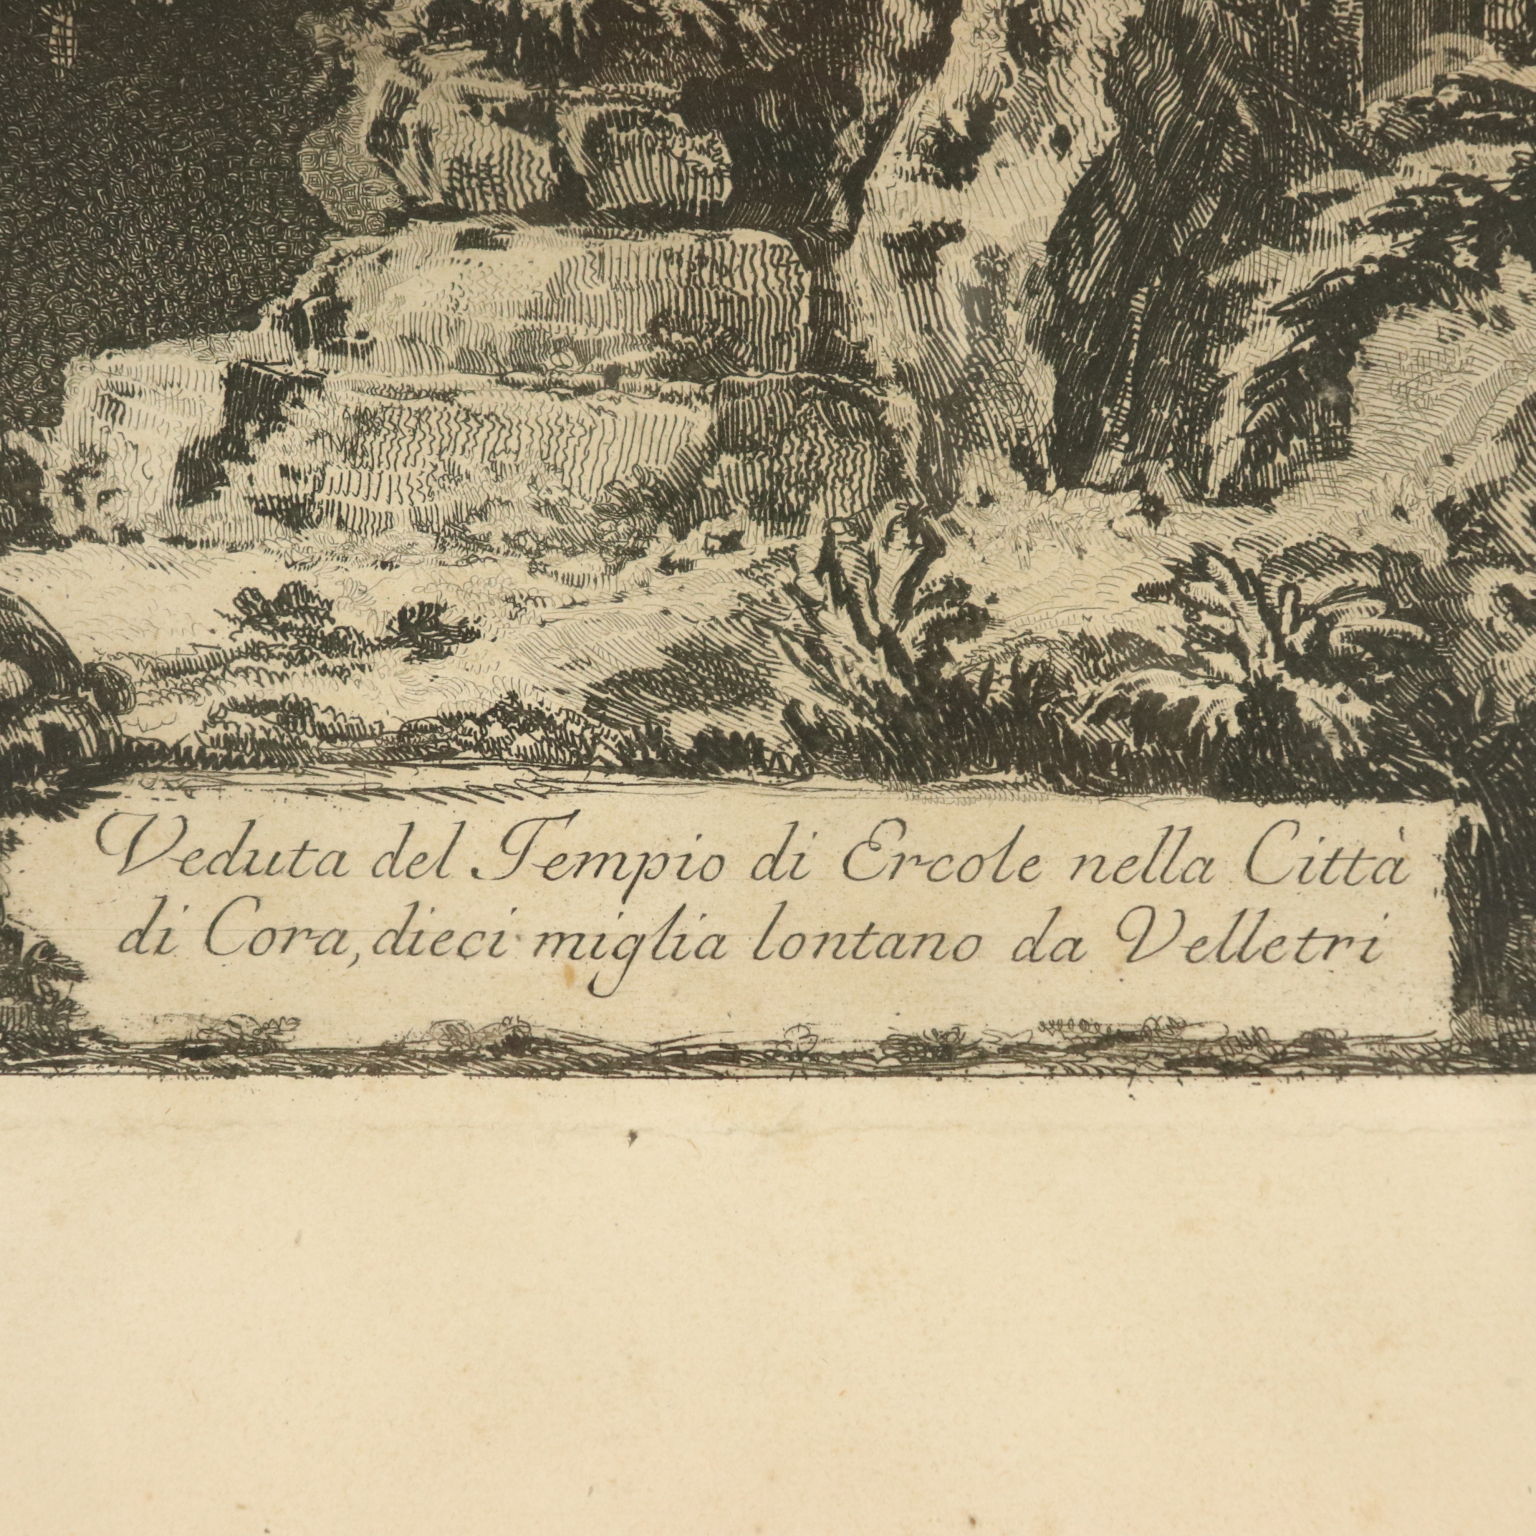 Veduta del Tempio di Ercole nella Città
di Cora, dieci miglia lontano da Velletri